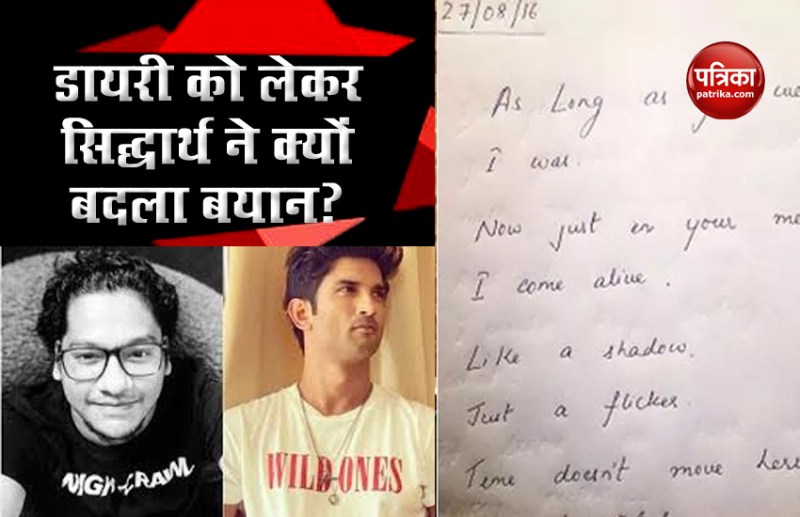 डायरी को लेकर
सिद्धार्थ ने क्यों
बदला बयान?
27/08/16
पत्रिका
patrika.com
As Long as
I was.
Now just in your
I come alive.
Like a shadow.
Just a flicker.
Time doesn't move here
WILD ONES